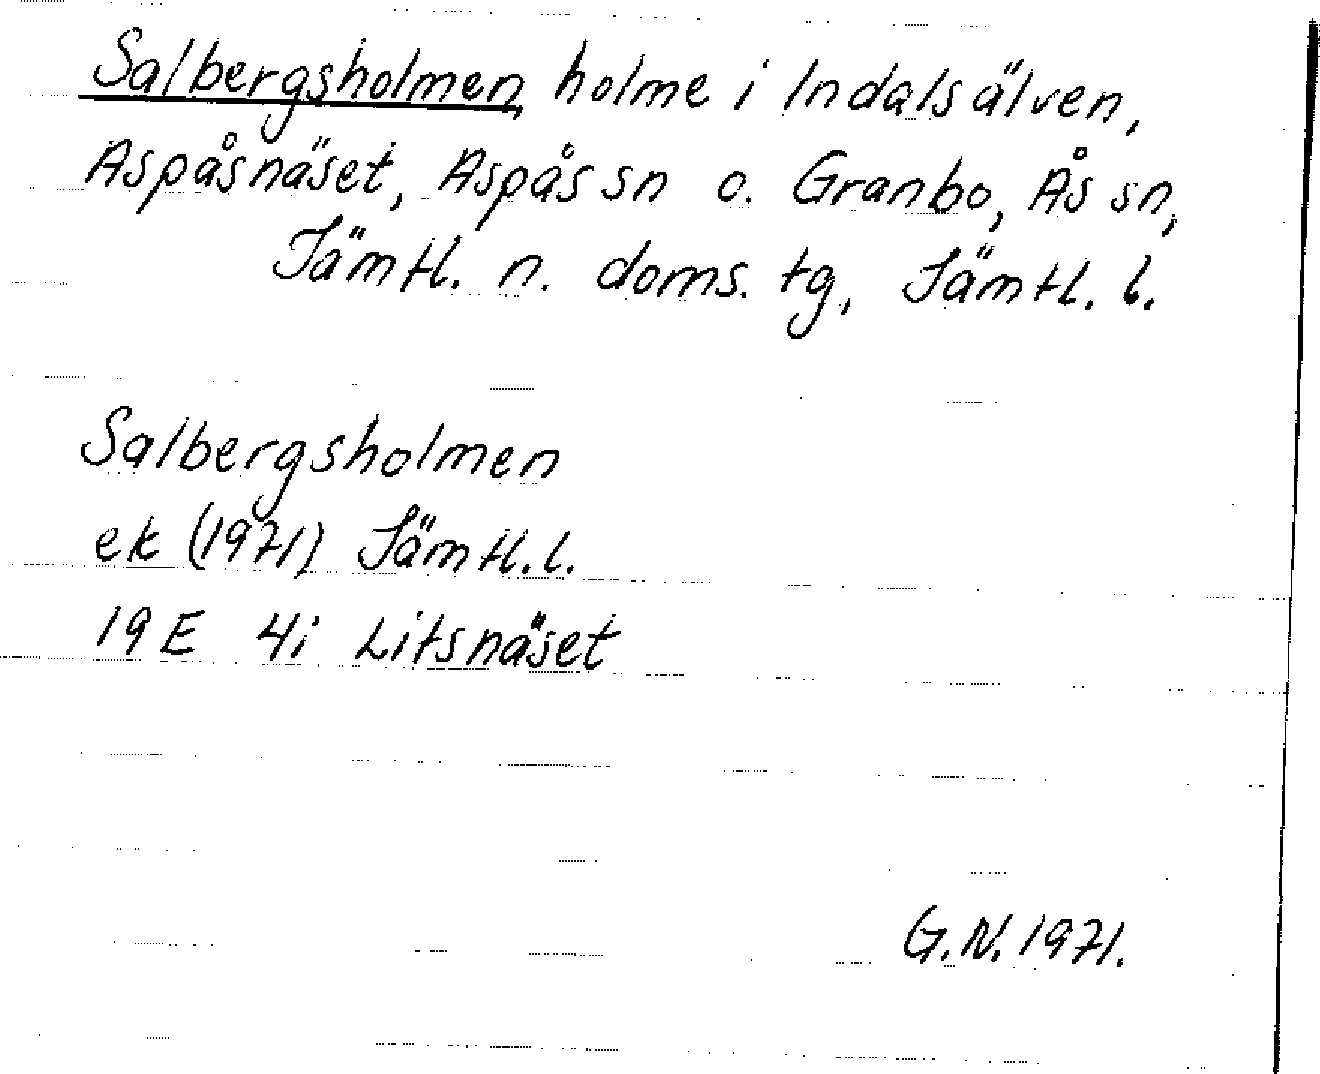 Salbergsholmen, holme i Indalsälven,
Aspåsnäset, Aspås sn o. Granbo, Ås sn,
Jämtl. n. doms. tg, Jämtl. l.
Salbergsholmen
ek (1971) Jämtl. l.
19E 4i Litsnäset
G.N. 1971.